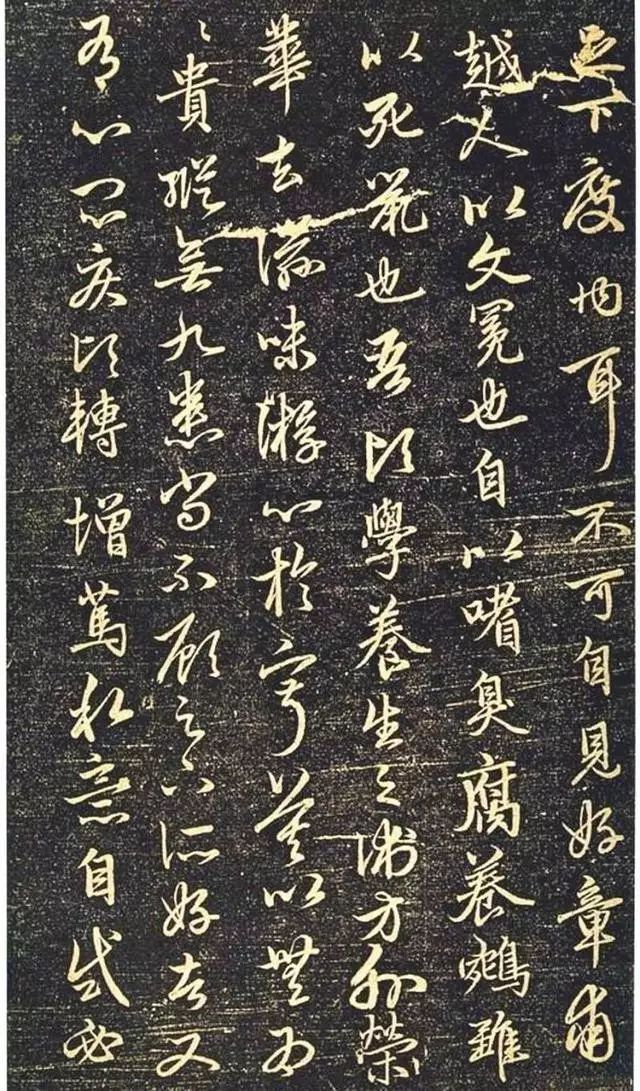 足下度内耳不可自見好章甫
越人以文冕也自以嗜臭腐養鵷雛
以死鼠也吾頃學養生之術方外榮
華去滋味游心於寂寞以無為
〻貴縱無九患尚不顧足下所好者又
有心悶疾頃轉增篤私意自試必